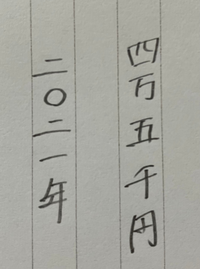 四万五千円
二〇二一年